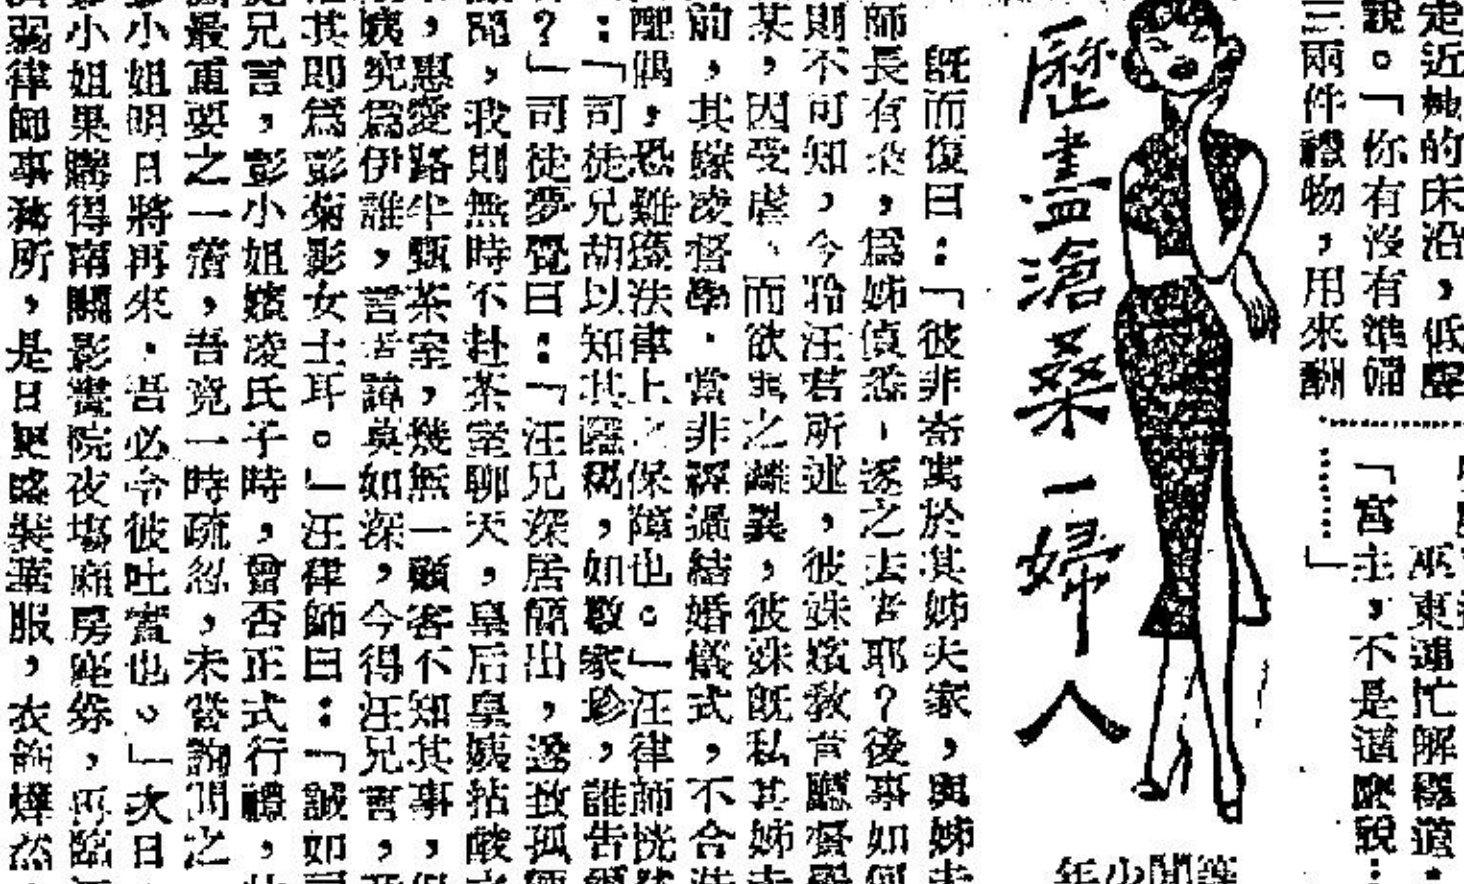 走近她的床沿，低聲
說。「你有沒有準備
三兩件禮物，用來酬
……」
巫東連忙解釋道：
「宮主，不是這麽說：
歷盡滄桑一婦人
既而復曰：「彼非寄寓於其姊夫家，與姊
師長有染，爲姊偵悉，逐之去者耶？後事如何
則不可知，今聆汪君所述，彼姝嬪教育廳督學
某，因受虐、而欲與之離異，彼姝既私其姊夫
前，其嫁凌督學．當非經過結婚儀式，不合法
配偶，恐難獲法律上之保障也。」汪律師恍然
：「司徒兄胡以知其隱稱，如數家珍，誰告爾
？」司徒夢覺曰：「汪兄深居簡出，遂致孤陋
聞，我則無時不赴茶室聊天，皇后皇姨拈酸
，惠愛路半甌茶室，幾無一顧客不知其事，但
姨究爲伊誰，言者諱莫如深，今得汪兄言，
其即爲彭菊影女士耳。」汪律師曰：「誠如
兄言，彭小姐嬪凌氏子時，曾否正式行禮，此
最重要之一着，吾竟一時疏忽，未嘗詢問之
小姐明日將再來．吾必令彼吐實也。」次日
小姐果購得南關影畫院夜場廂房座券，再臨
弱律師事務所，是日更盛裝華服，衣飾燁然